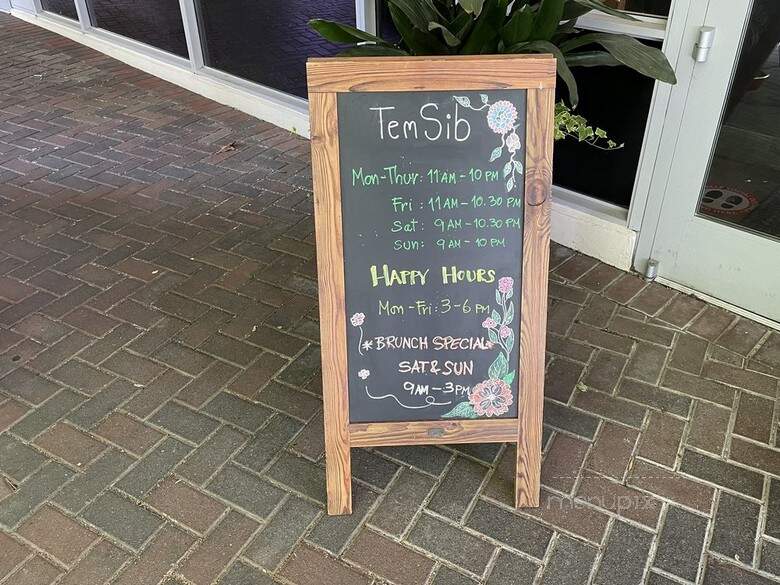 TemSib
Mon-Thur: 11AM-10PM
Fri: 11AM-10.30PM
Sat: 9AM-10.30PM
Sun: 9AM-10PM
HAPPY HOURS
Mon-Fri: 3-6PM
*BRUNCH SPECIAL*
SAT&SUN
9AM-3PM
menupix